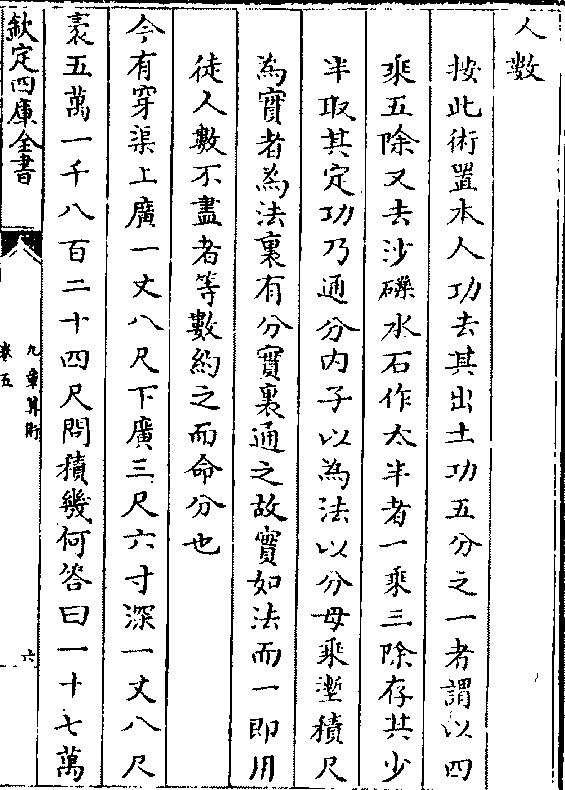 人數
按此術置本人功去其出土功五分之一者謂以四
乘五除又去沙礫水石作太半者一乘三除存其少
半取其定功乃通分内子以為法以分母乘壍積尺
為實者為法裏有分實裏通之故實如法而一即用
徒人數不盡者等數約之而命分也
今有穿渠上廣一丈八尺下廣三尺六寸深一丈八尺
袤五萬一千八百二十四尺問積幾何答曰一十七萬
欽定四庫全書
九章算術
卷五
六